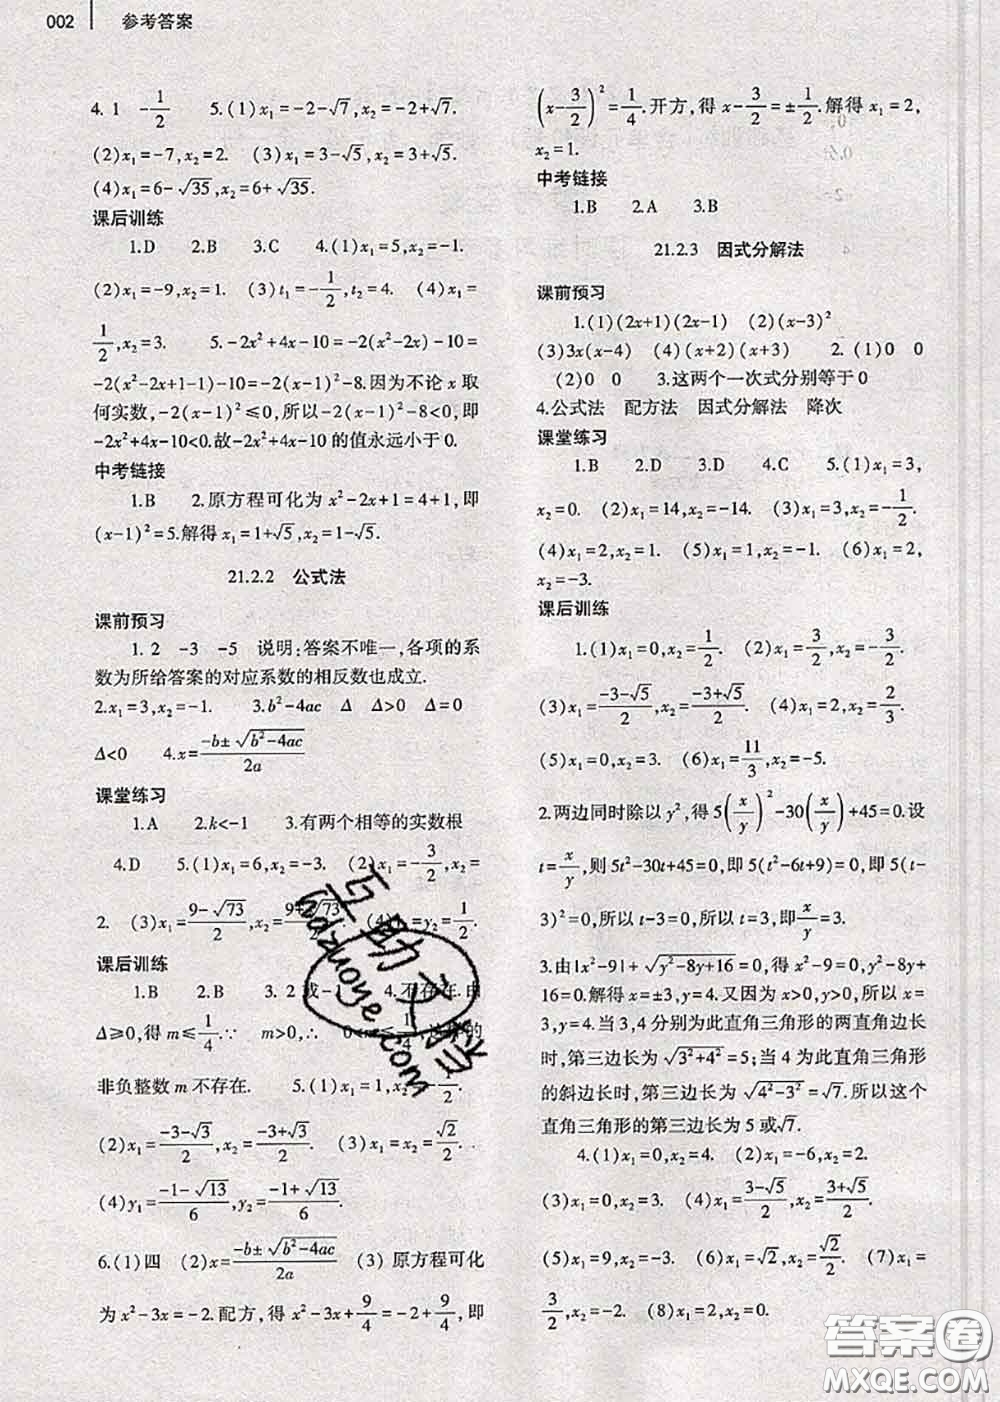 002 参考答案
4. 1 -1/2 5.(1)x₁=-2-√7,x₂=-2+√7.
(2)x₁=-7,x₂=2. (3)x₁=3-√5,x₂=3+√5.
(4)x₁=6-√35,x₂=6+√35.
课后训练
1.D 2.B 3.C 4.(1)x₁=5,x₂=-1.
(2)x₁=-9,x₂=1. (3)t₁=-1/2,t₂=4. (4)x₁=
1/2,x₂=3. 5.-2x²+4x-10=-2(x²-2x)-10=
-2(x²-2x+1-1)-10=-2(x-1)²-8.因为不论x取
何实数,-2(x-1)²≤0,所以-2(x-1)²-8<0,即
-2x²+4x-10<0.故-2x²+4x-10的值永远小于0.
中考链接
1.B 2.原方程可化为x²-2x+1=4+1,即
(x-1)²=5.解得x₁=1+√5,x₂=1-√5.
21.2.2 公式法
课前预习
1. 2 -3 -5 说明:答案不唯一,各项的系
数为所给答案的对应系数的相反数也成立.
2.x₁=3,x₂=-1. 3.b²-4ac Δ Δ>0 Δ=0
Δ<0 4.x=(-b±√(b²-4ac))/2a
课堂练习
1.A 2.k<-1 3.有两个相等的实数根
4.D 5.(1)x₁=6,x₂=-3. (2)x₁=-3/2,x₂=
2. (3)x₁=(9-√73)/2,x₂=(9+√73)/2. (4)y₁=y₂=1/2.
课后训练
1.B 2.B 3. 2或-1 4.不存在.由
Δ≥0,得m≤1/4.∵ m>0,∴ 0<m≤1/4,
的
非负整数m不存在. 5.(1)x₁=1,x₂=-1/2.
(2)x₁=(-3-√3)/2,x₂=(-3+√3)/2. (3)x₁=x₂=√2/2.
(4)y₁=(-1-√13)/6,y₂=(-1+√13)/6.
6.(1)四 (2)x=(-b±√(b²-4ac))/2a (3) 原方程可化
为x²-3x=-2.配方,得x²-3x+9/4=-2+9/4,即
(x-3/2)²=1/4.开方,得x-3/2=±1/2.解得x₁=2,
x₂=1.
中考链接
1.B 2.A 3.B
21.2.3 因式分解法
课前预习
1.(1)(2x+1)(2x-1) (2)(x-3)²
(3)3x(x-4) (4)(x+2)(x+3) 2. (1)0 0
(2)0 0 3.这两个一次式分别等于0
4.公式法 配方法 因式分解法 降次
课堂练习
1.B 2.D 3.D 4.C 5.(1)x₁=3,
x₂=0. (2)x₁=14,x₂=-14. (3)x₁=3,x₂=-1/2.
(4)x₁=2,x₂=1. (5)x₁=1,x₂=-1. (6)x₁=2,
x₂=-3.
课后训练
1.(1)x₁=0,x₂=1/2. (2)x₁=3/2,x₂=-3/2.
(3)x₁=(-3-√5)/2,x₂=(-3+√5)/2. (4)x₁=2,x₂=2/3.
(5)x₁=0,x₂=1. (6)x₁=11/3,x₂=-5.
2.两边同时除以y²,得5(x/y)²-30(x/y)+45=0.设
t=x/y,则5t²-30t+45=0,即5(t²-6t+9)=0,即5(t-
3)²=0,所以t-3=0,所以t=3,即x/y=3.
3.由|x²-9|+√(y²-8y+16)=0,得x²-9=0,y²-8y+
16=0.解得x=±3,y=4.又因为x>0,y>0,所以x=
3,y=4.当3,4分别为此直角三角形的两直角边长
时,第三边长为√(3²+4²)=5;当4为此直角三角形
的斜边长时,第三边长为√(4²-3²)=√7.所以这个
直角三角形的第三边长为5或√7.
4.(1)x₁=0,x₂=4. (2)x₁=-6,x₂=2.
(3)x₁=0,x₂=3. (4)x₁=(3-√5)/2,x₂=(3+√5)/2.
(5)x₁=9,x₂=-3. (6)x₁=√2,x₂=√2/2. (7)x₁=
3/2,x₂=-2. (8)x₁=2,x₂=0.
互助文档
hdzuoye.com
答案圈
MXQE.COM